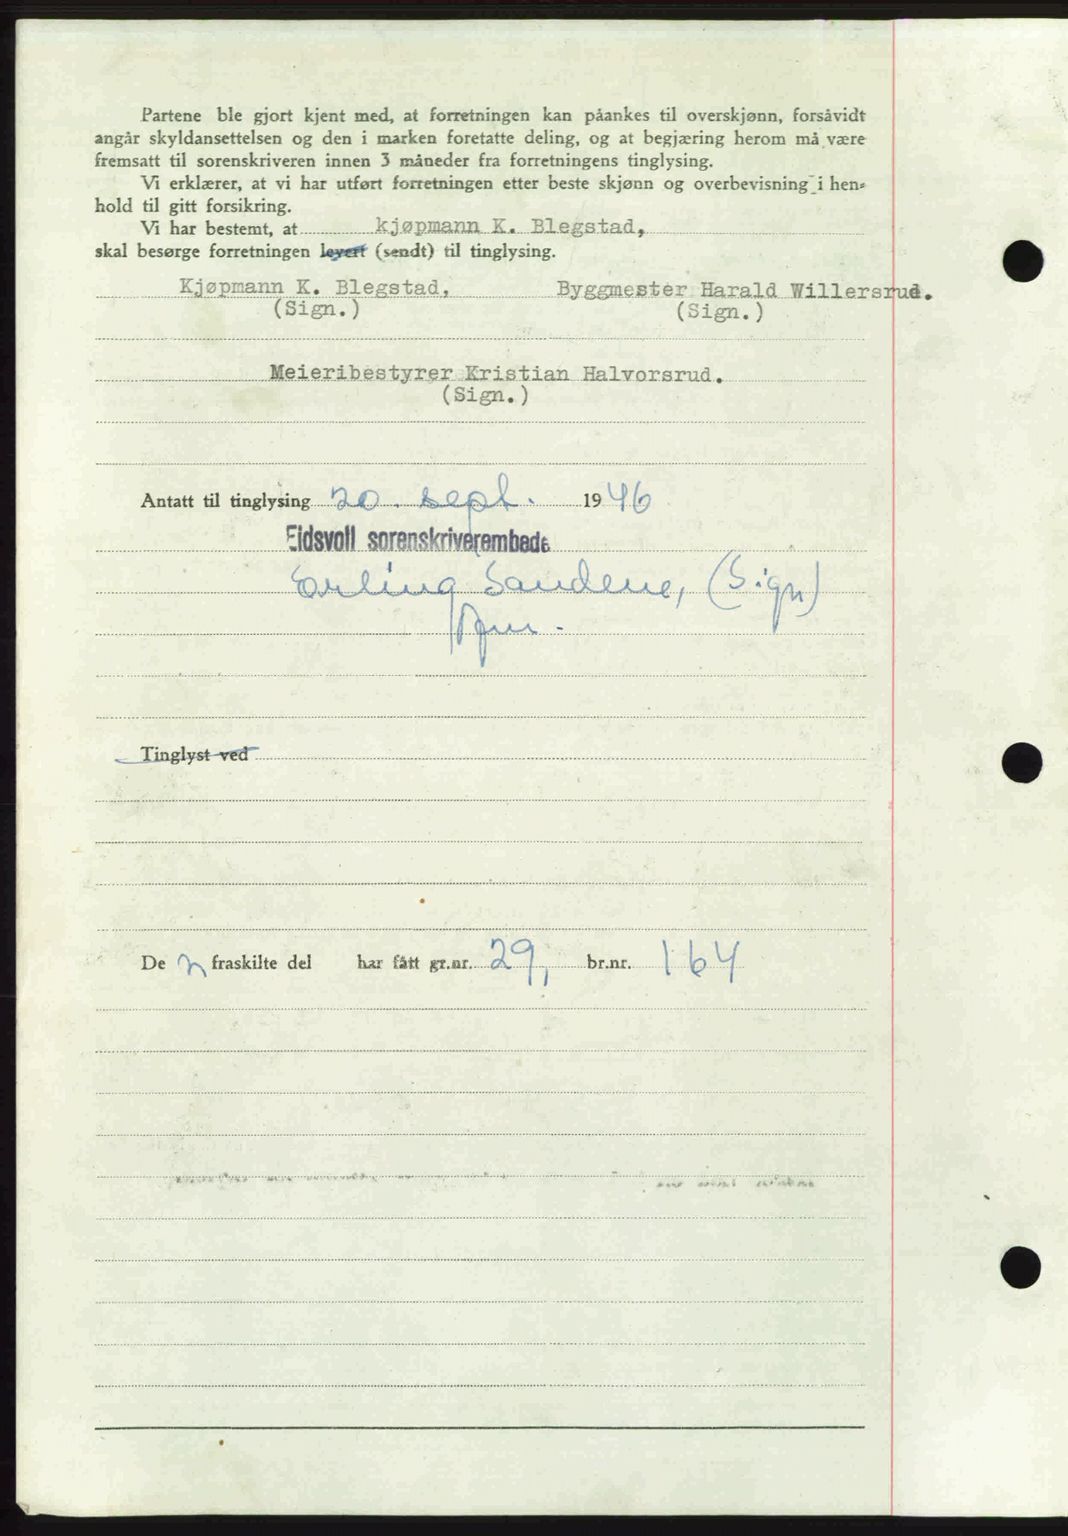 Partene ble gjort kjent med, at forretningen kan påankes til overskjønn, forsåvidt
angår skyldansettelsen og den i marken foretatte deling, og at begjæring herom må være
fremsatt til sorenskriveren innen 3 måneder fra forretningens tinglysing.
Vi erklærer, at vi har utført forretningen etter beste skjønn og overbevisning i hen-
hold til gitt forsikring.
Vi har bestemt, at kjøpmann K. Blegstad,
skal besørge forretningen levert (sendt) til tinglysing.
Kjøpmann K. Blegstad, Byggmester Harald Willersrud.
(Sign.) (Sign.)
Meieribestyrer Kristian Halvorsrud.
(Sign.)
Antatt til tinglysing 20. sept. 1946
Eidsvoll sorenskriverembede
Erling Sandene, (Sign)
fm.
Tinglyst ved
De n fraskilte del har fått gr.nr. 29, br.nr. 164